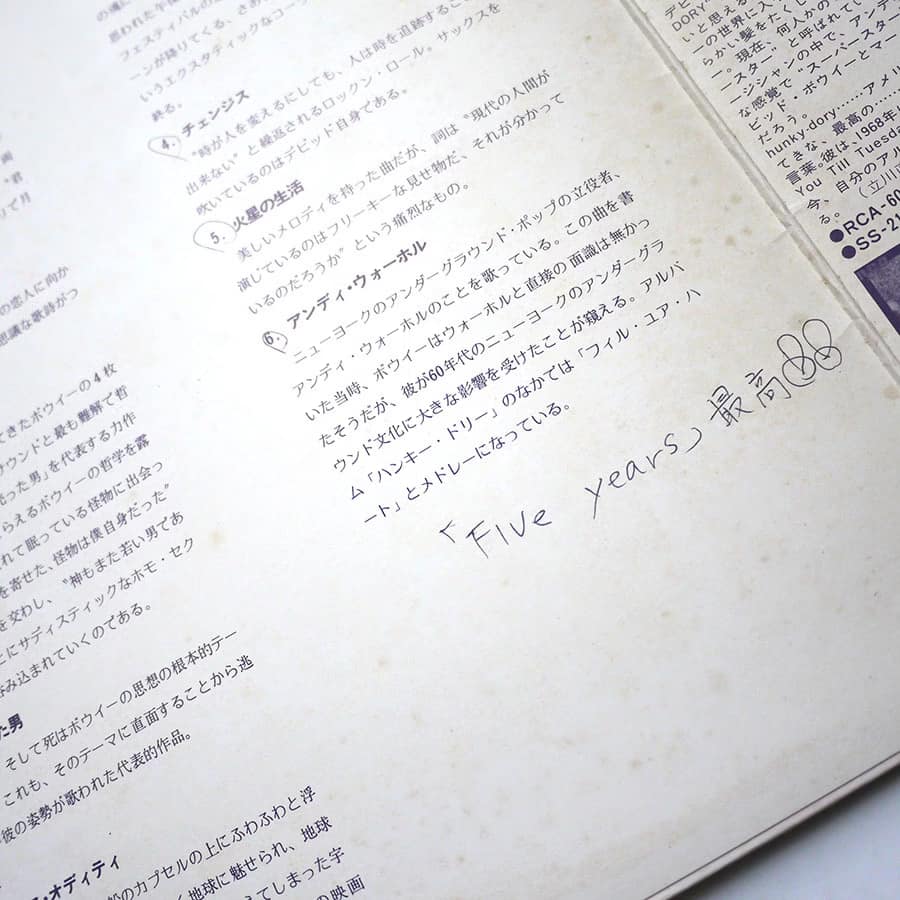 思われた午後
フェスティバルの
ーンが降りてくる、さあ
いうエクスタティックなコー
終る。
4. チェンジス
“時が人を変えるにしても、人は時を追跡すること
出来ない”と繰返されるロックン・ロール。サックスを
吹いているのはデビッド自身である。
5. 火星の生活
美しいメロディを持った曲だが、詞は“現代の人間が
演じているのはフリーキーな見せ物だ、それが分かって
いるのだろうか”という痛烈なもの。
6. アンディ・ウォーホル
ニューヨークのアンダーグラウンド・ポップの立役者、
アンディ・ウォーホルのことを歌っている。この曲を書
いた当時、ボウイーはウォーホルと直接の面識は無かっ
たそうだが、彼が60年代のニューヨークのアンダーグラ
ウンド文化に大きな影響を受けたことが窺える。アルバ
ム「ハンキー・ドリー」のなかでは「フィル・ユア・ハ
ート」とメドレーになっている。
「Five years」最高
の恋人に向か
思議な歌詩がつ
てきたボウイーの4枚
サウンドと最も難解で哲
売った男」を代表する力作
らえるボウイーの哲学を露
れて眠っている怪物に出会っ
を寄せた、怪物は僕自身だった”
を交わし、“神もまた若い男であ
とにサディスティックなホモ・セク
呑み込まれていくのである。
た男
そして死はボウイーの思想の根本的テー
これも、そのテーマに直面することから逃
彼の姿勢が歌われた代表的作品。
・オディティ
船のカプセルの上にふわふわと浮
く地球に魅せられ、地球
えてしまった宇
の映画
デビ
DORY
いと思える
ーの世界に入
らかい髪をたくし
ー。現在、何人かの
ニスター”と呼ばれてい
ージシャンの中で、ア
な感覚で“スーパースター
ビッド・ボウイーとマー
だろう。
hunky-dory……アメリ
てきな、最高の……
言葉。彼は、1968年
You Till Tuesda
今、自分のアル
（立川
る。
●RCA-60
●SS-21